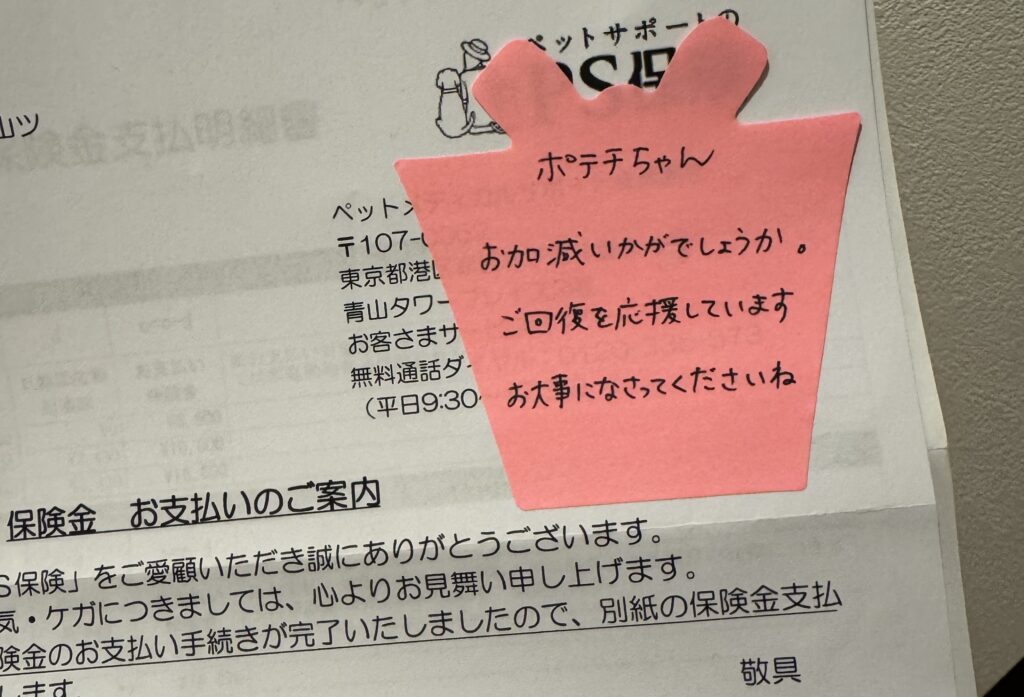 山ツ
ペットサポートの
PS保
保険金支払明細書
ポテチちゃん
お加減いかがでしょうか。
ご回復を応援しています
お大事になさってくださいね
ペットメ
〒107-
東京都港
青山タワー
お客さまサ
無料通話ダ
(平日9:30
保険金 お支払いのご案内
S保険」をご愛顧いただき誠にありがとうございます。
気・ケガにつきましては、心よりお見舞い申し上げます。
険金のお支払い手続きが完了いたしましたので、別紙の保険金支払
します。
敬具